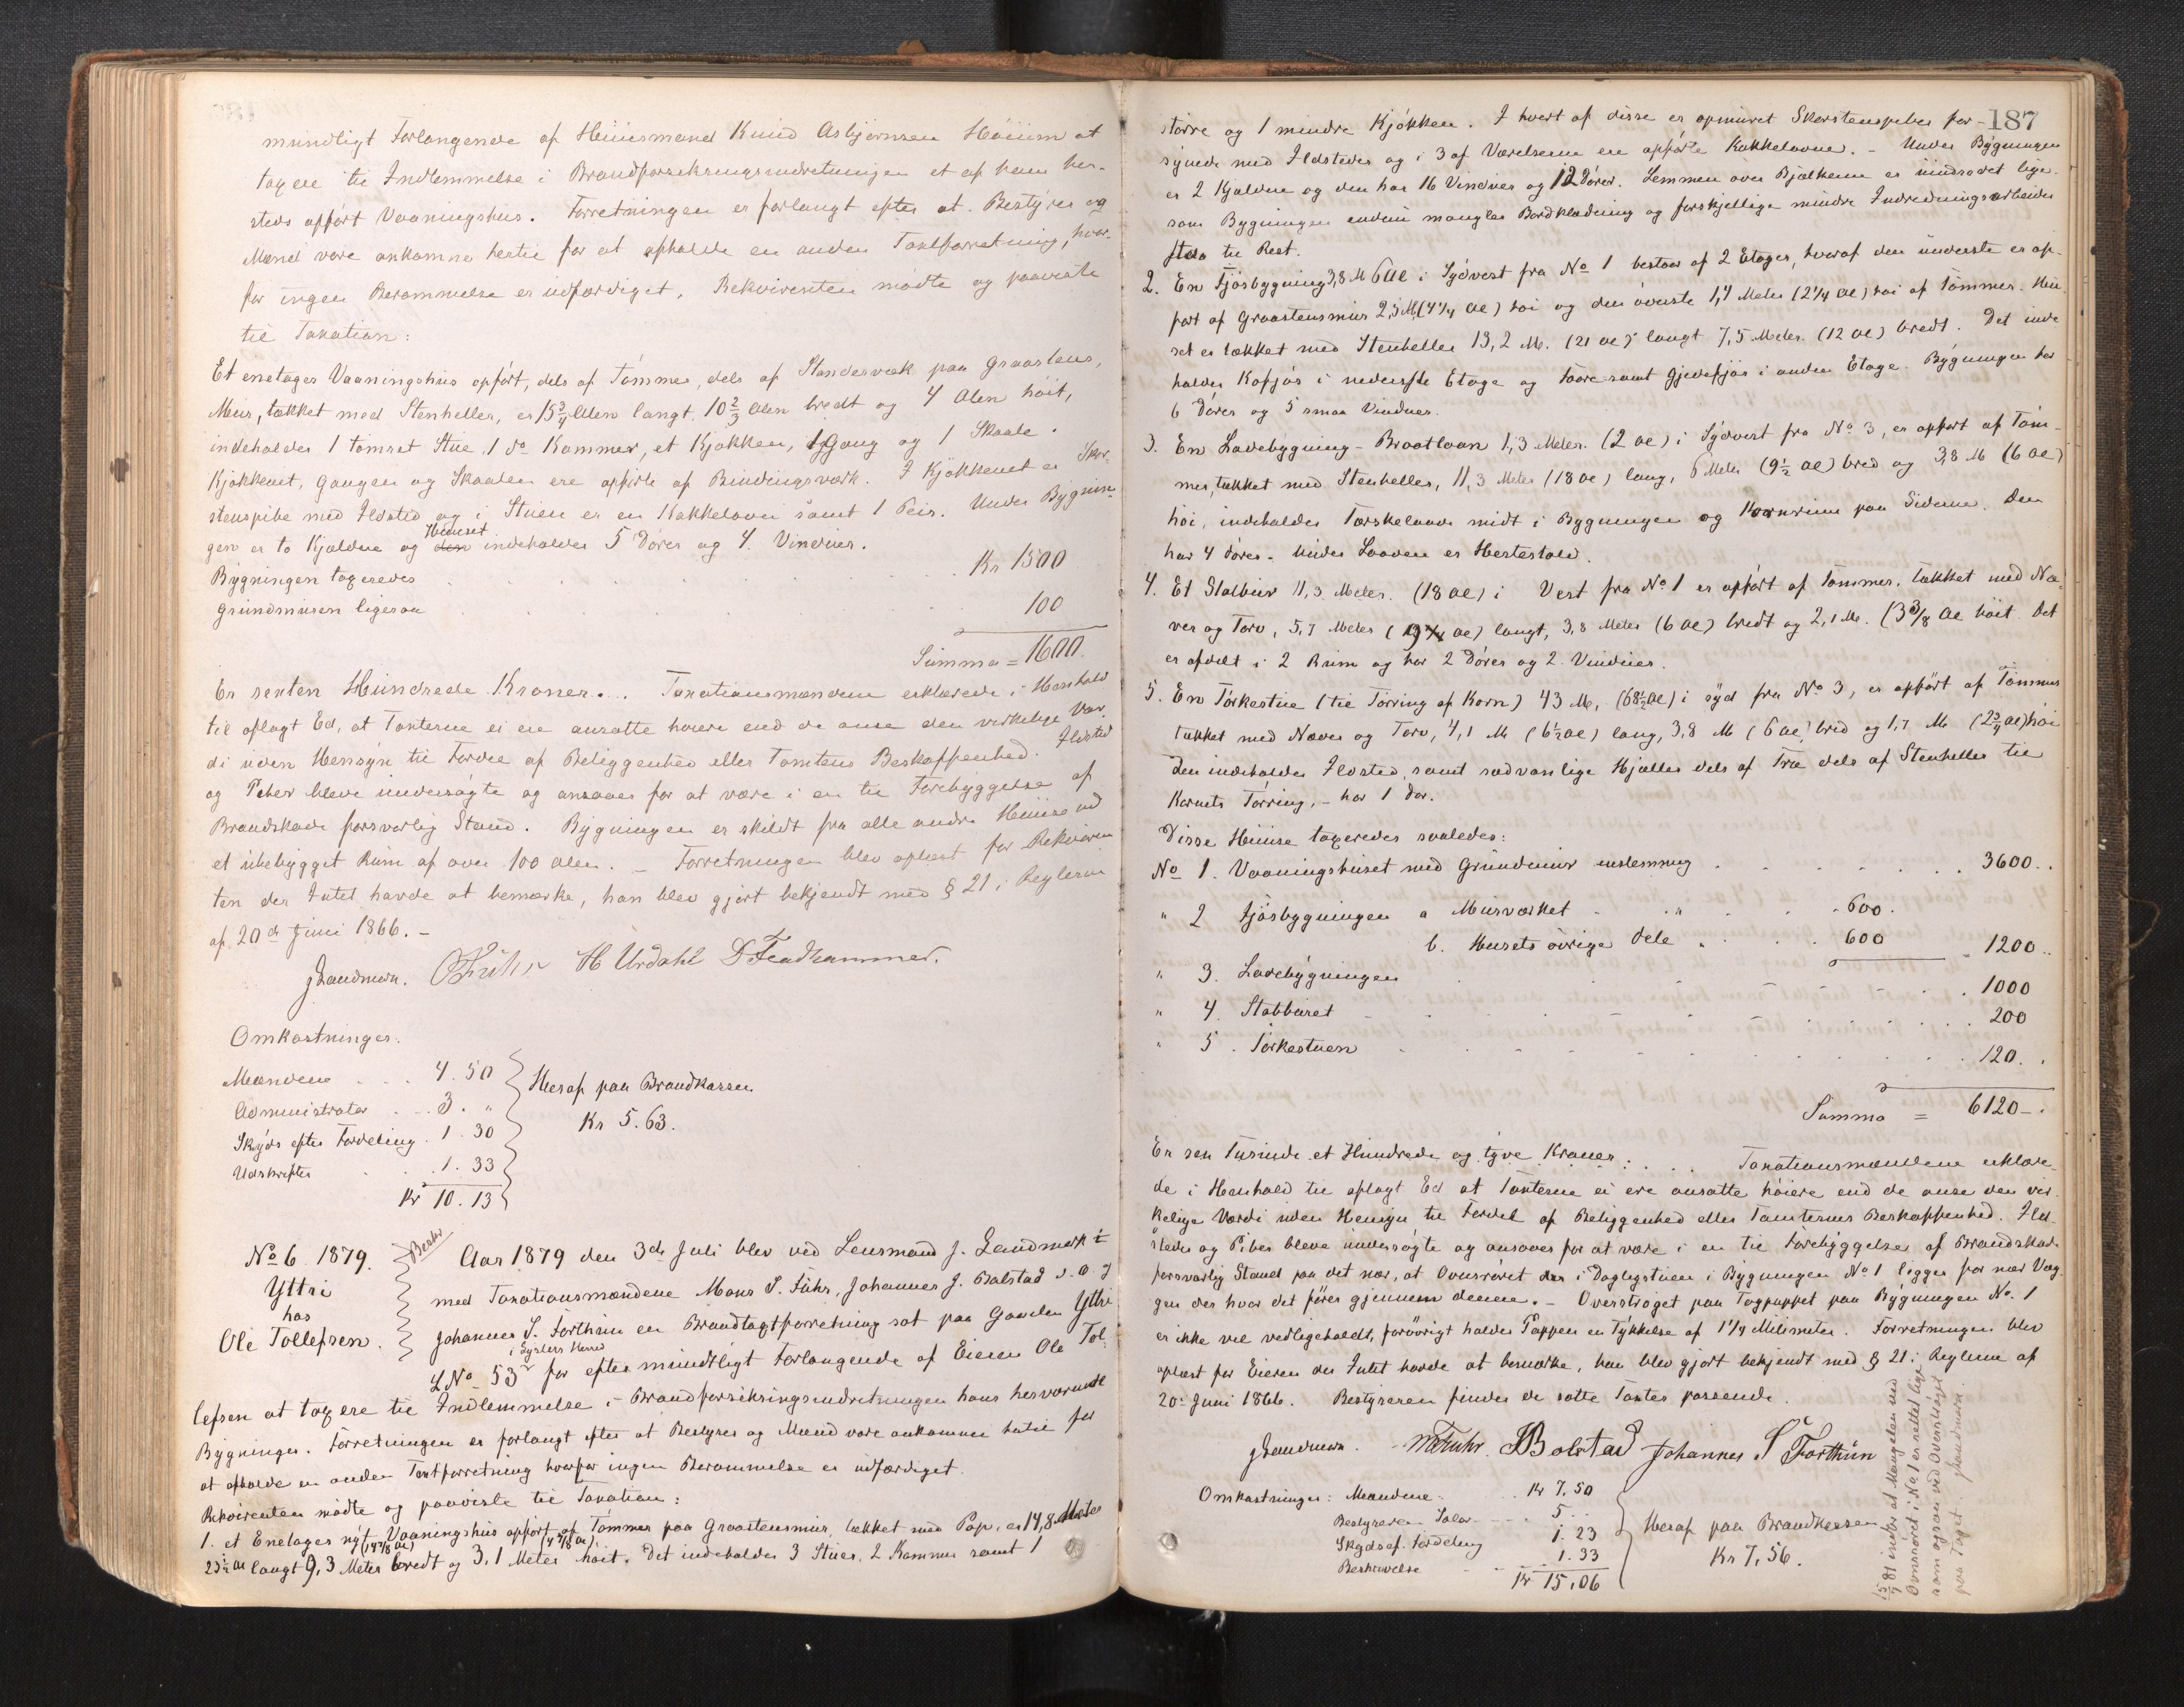 mundtligt Forlangende af Huusmand Knud Asbjørnsen Høium at
taxere til Indlemmelse i Brandforsikringsindretningen et af ham her-
steds opført Vaaningshus. Forretningen er forlangt efter at Bestyrer og
Mænd vare ankomne hertil for at afholde en anden Taxtforretning, hvor-
for ingen Berammelse er udfærdiget. Rekvirenten mødte og paaviste
til Taxation:
Et enetages Vaaningshus opført, dels af Tømmer, dels af Standerværk paa Graastens
Muur, tækket med Stenheller, er 15 3/4 Alen langt 10 2/3 Alen bredt og 4 Alen høit,
indeholder 1 tømret Stue, 1 do Kammer, et Kjøkken, 1 Gang og 1 Skaale.
Kjøkkenet, Gangen og Skaalen ere opførte af Bindingsværk. I Kjøkkenet er Skor-
stenspibe med Ildsted og i Stuen er en Kakkelovn samt 1 Peis. Under Bygnin-
gen er to Kjældere og den Huuset indeholder 5 Dører og 4. Vinduer.
Bygningen taxeredes . . . . . . Kr 1500
Grundmuren ligesaa . . . . . . 100
Summa = 1600.
Er sexten Hundrede Kroner... Taxationsmændene erklærede i Henhold
til aflagt Ed, at Taxterne ei ere ansatte høiere end de anse den virkelige Vær-
di uden Hensyn til Fordel af Beliggenhed eller Tomtens Beskaffenhed. Ildsted
og Piber bleve undersøgte og ansaaes for at være i en til Forebyggelse af
Brandskade forsvarlig Stand. Bygningen er skildt fra alle andre Huuse ved
et ubebygget Rum af over 100 Alen. – Forretningen blev oplæst for Rekviren-
ten der Intet havde at bemærke, han blev gjort bekjendt med § 21 i Reglerne
af 20de Juni 1866. –
JLandmark. OFuhr H Urdahl D Feadhammer.
Omkostninger.
Mændene . . . 4.50
Administrator . . 3. "
Skyds efter Fordeling . 1.30
Udskrifter . . . 1.33
Kr 10.13
Heraf paa Brandkassen
Kr 5.63.
No 6 1879.
Yttri
hos
Ole Tollefsen.
Beskr
Aar 1879 den 3de Juli blev ved Lensmand J. Landmark
med Taxationsmændene Mons S. Fuhr, Johannes J. Bolstad s. o. g
Johannes S. Forthun en Brandtaxtforretning sat paa Gaarden Yttri
i Lysters Herred
L No 53 for efter mundtligt Forlangende af Eieren Ole Tol-
lefsen at taxere til Indlemmelse i Brandforsikringsindretningen hans hersværende
Bygninger. Forretningen er forlangt efter at Bestyrer og Mænd vare ankomne hertil for
at afholde en anden Taxtforretning hvorfor ingen Berammelse er udfærdiget.
Rekvirenten mødte og paaviste til Taxation:
1. et Enetages nyt Vaaningshus opført af Tømmer paa Graastensmuur, tækket med Pap, er 14,8 Meter
23 1/2 Al langt 9,3 Meter (14 7/8 Al) bredt og 3,1 Meter (4 7/8 Al) høit. Det indeholder 3 Stuer, 2 Kammer samt 1
187
større og 1 mindre Kjøkken. I hvert af disse er opmuret Skorstenspiber for-
synede med Ildsteder og i 3 af Værelserne ere opførte Kakkelovne. – Under Bygningen
er 2 Kjældere og den har 16 Vinduer og 12 Dører. Lemmen over Bjælkerne er uindredet lige-
som Bygningen endnu mangler Bordklædning og forskjellige mindre Indredningsarbeider
staa til Rest.
2. En Fjøsbygning 3,8 M 6 Al i Sydvest fra No 1 bestaar af 2 Etager, hvoraf den underste er op-
ført af Graastensmuur 2,5 M (4 1/4 Al) høi og den øverste 1,4 Meter (2 1/4 Al) høi af Tømmer. Huu-
set er tækket med Stenheller 13,2 M. (21 Al) langt 7,5 Meter. (12 Al) bredt. Det inde
holder Kofjøs i nederste Etage og Faare- samt Gjedefjøs i anden Etage. Bygningen har
6 Dører og 5 smaa Vinduer.
3. En Ladebygning – Braatloan 1,3 Meter. (2 Al) i Sydvest fra No 3, er opført af Tøm-
mer, tækket med Stenheller, 11,3 Meter (18 Al) lang, 6 Meter (9 1/2 Al) bred og 3,8 M (6 Al)
høi, indeholder Tærskelaave midt i Bygningen og Kornrum paa Siderne. Den
har 4 Dører. Under Laaven er Hestestald.
4. Et Stolbuur 11,3 Meter. (18 Al) i Vest fra No 1 er opført af Tømmer, tækket med Næ-
ver og Torv, 5,7 Meter (9 1/4 Al) langt, 3,8 Meter (6 Al) bredt og 2,1 M. (3 3/8 Al høit. Det
er afdelt i 2 Rum og har 2 Dører og 2 Vinduer.
5. En Tørkestue (til Tørring af Korn) 43 M, (68 1/2 Al) i Syd fra No 3, er opført af Tømmer
tækket med Næver og Torv, 4,1 M (6 1/2 Al) lang, 3,8 M (6 Al) bred og 1,7 M (2 3/4 Al) høi
Den indeholder Ildsted, samt sædvanlige Hjæller dels af Træ dels af Stenheller til
Kornets Tørring, – har 1 Dør.
Disse Huuse taxeredes saaledes:
No 1. Vaaningshuset med Grundmur indlemmes . . . . 3600 . .
" 2 Fjøsbygningen a Muurværket . . . 600.
b. Husets øvrige Dele . . . 600 1200 . .
" 3. Ladebygningen . . . . . 1000
" 4. Stabburet . . . . . 200
" 5. Tørkestuen . . . . . 120. .
Summa = 6120 – .
Er sex Tusinde et Hundrede og tyve Kroner: . . . Taxationsmændene erklære-
de i Henhold til aflagt Ed at Taxterne ei ere ansatte høiere end de anse den vir-
kelige Værdi uden Hensyn til Fordel af Beliggenhed eller Tomternes Beskaffenhed. Ild-
steder og Piber bleve undersøgte og ansaaes for at være i en til Forebyggelse af Brandskade
forsvarlig Stand paa det nær, at Ovnsrøret der i Dagligstuen i Bygningen No 1 ligger for nær Væg-
gen der hvor det føres gjennem denne. – Overstrøget paa Tagpappet paa Bygningen No. 1
er ikke vel vedligeholdt, forøvrigt holder Pappen en Tykkelse af 1 1/4 Milimeter. Forretningen blev
oplæst for Eieren der Intet havde at bemærke, han blev gjort bekjendt med § 21 i Reglerne af
20de Juni 1866. Bestyreren finder de satte Taxter passende.
JLandmark. MFuhr JJBolstad Johannes S Forthun
Omkostninger: Mændene . . Kr 7,50
Bestyreren Salær . . . 5 . .
Skyds ef. Fordeling 1.23
Beskrivelse . . 1.33
Kr 15,06
Heraf paa Brandkassen
Kr 7,56.
15/7 81 at Mangelen ved
Ovnsrøret i No 1 er rettet lige-
som ogsaa ved Overstrøget
paa Taget JLandmark